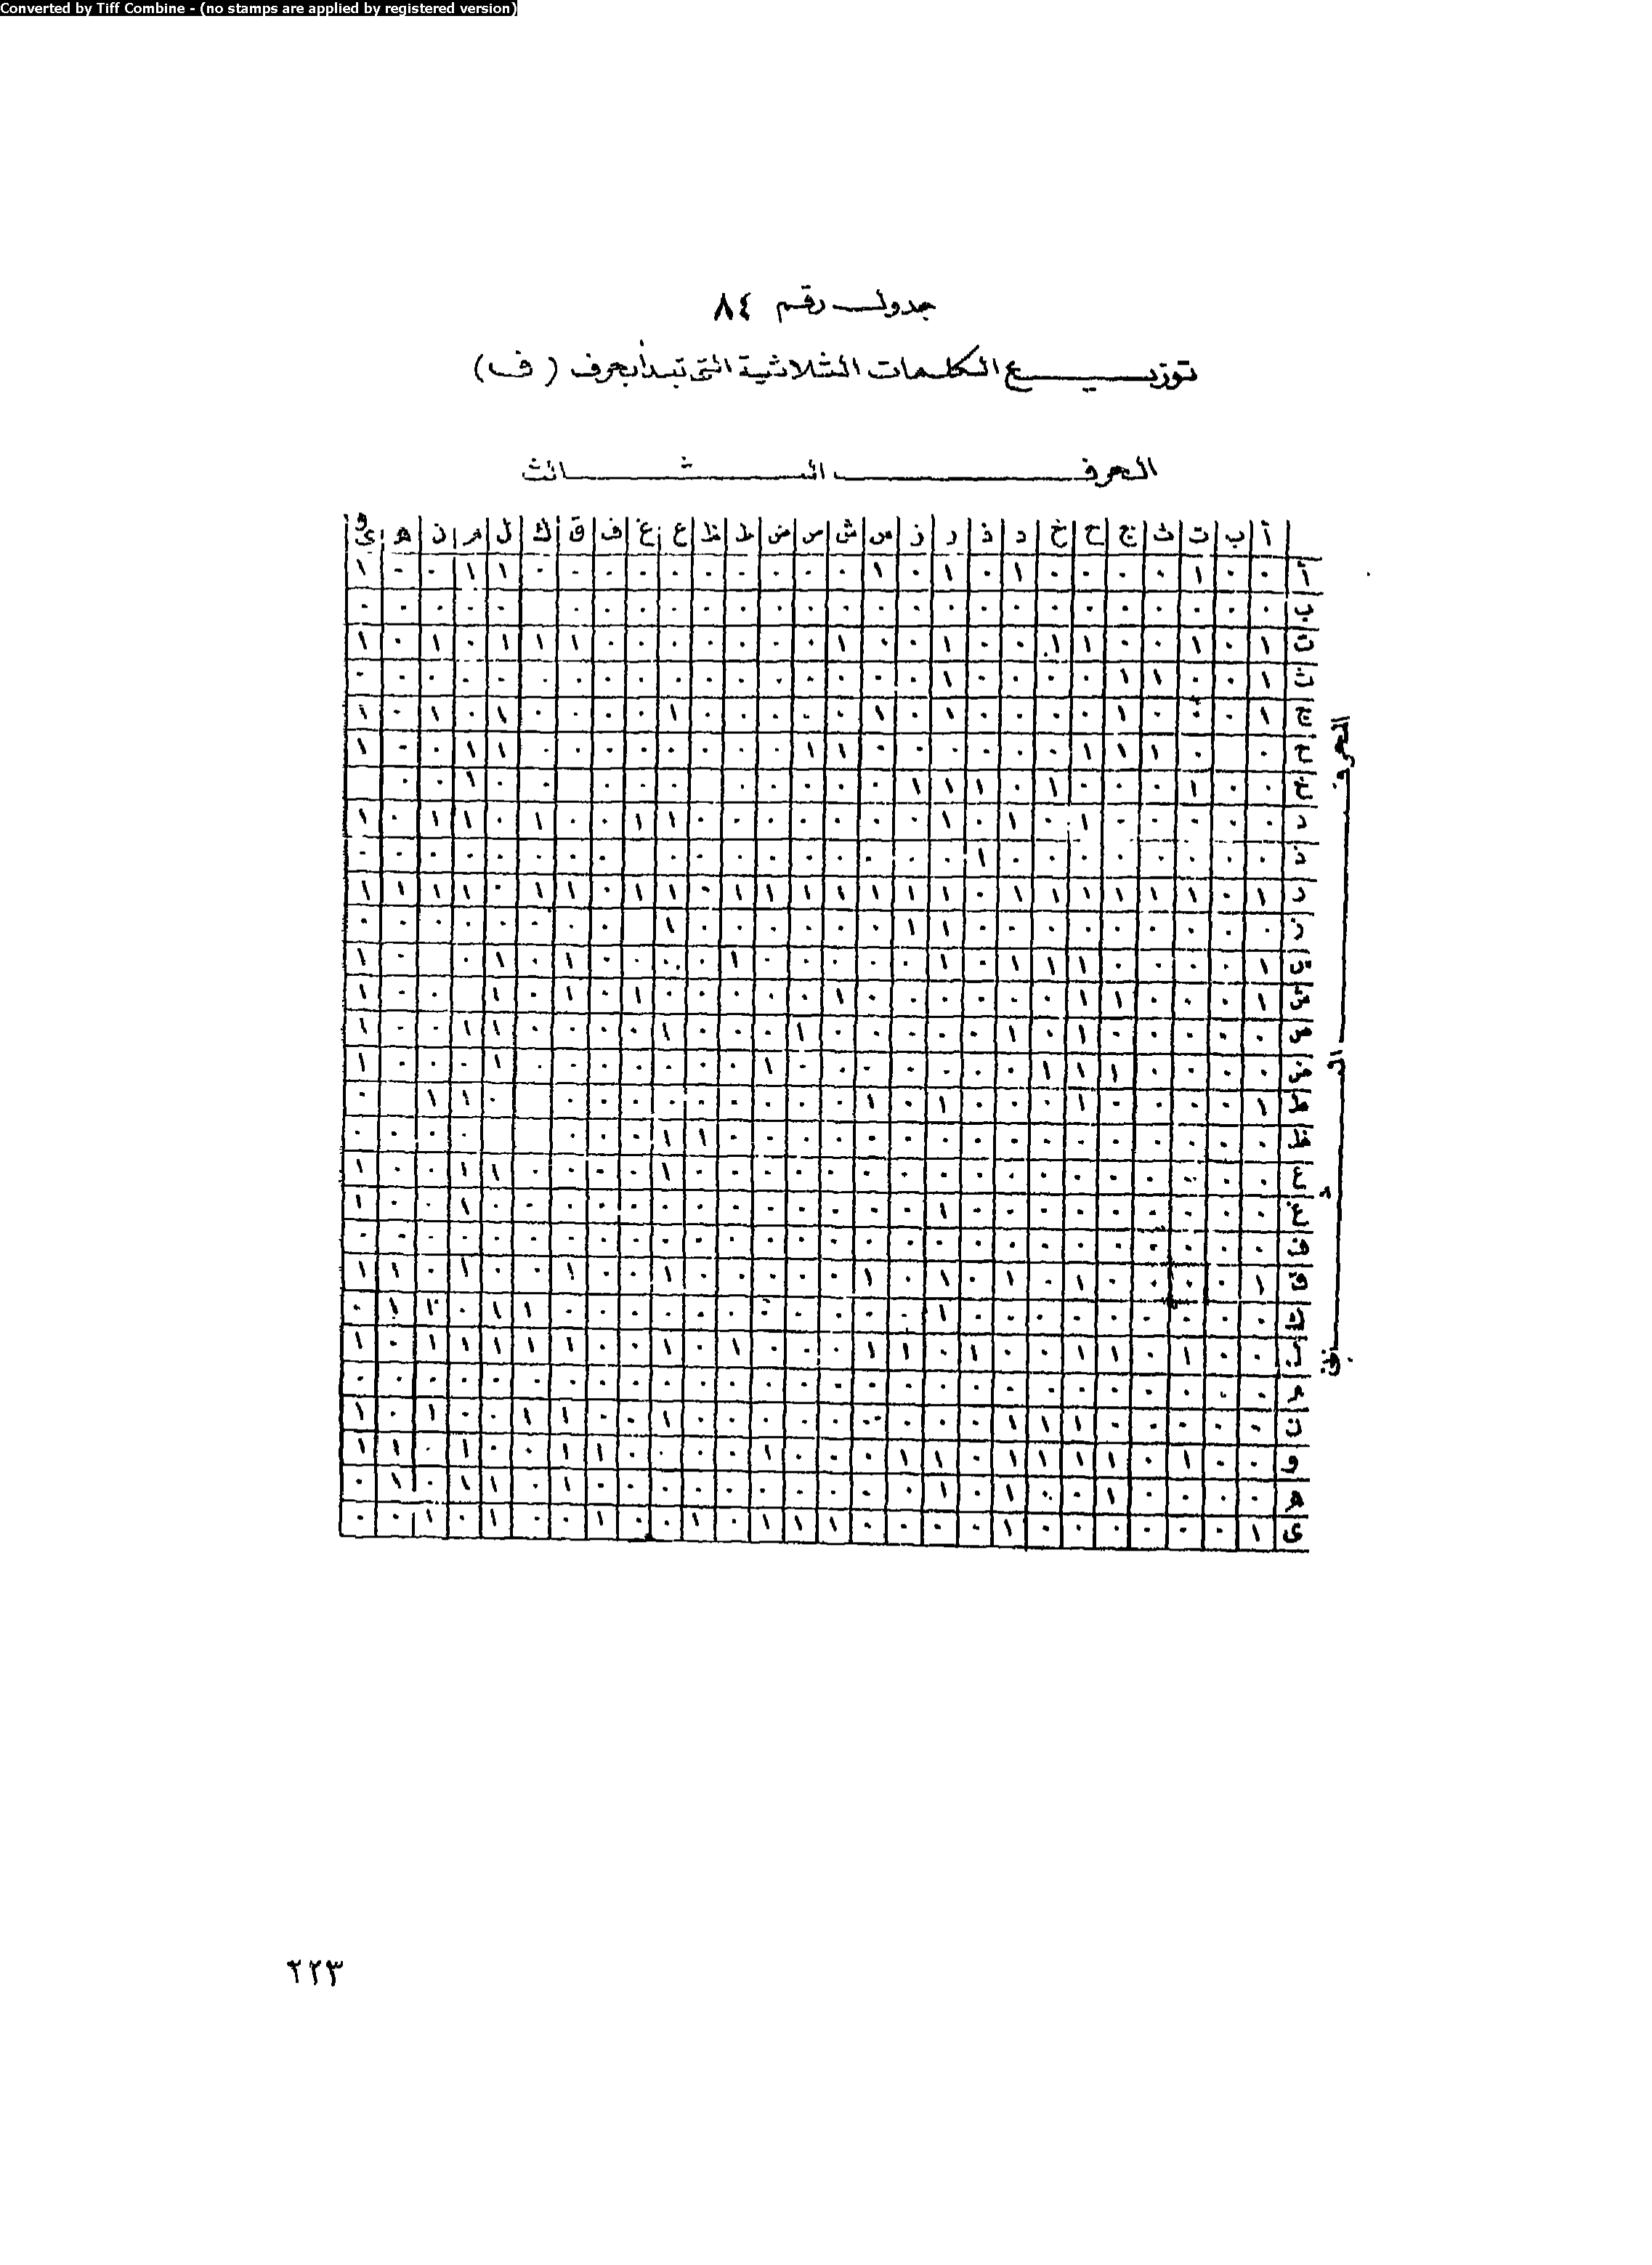 Converted by Tiff Combine - (no stamps are applied by registered version)
جدول رقم ٨٤
توزيع الكلمات الثلاثية التى تبدأ بحرف (ف)
الحرف الثالث
أ ب ت ث ج ح خ د ذ ر ز س ش ص ض ط ظ ع غ ف ق ك ل م ن ه و ى
الحرف الثانى
أ ٠ ٠ ١ ٠ ٠ ٠ ٠ ١ ٠ ١ ٠ ١ ٠ ٠ ٠ ٠ ٠ ٠ ٠ ٠ ٠ ٠ ١ ١ ٠ ٠ ١
ب ٠ ٠ ٠ ٠ ٠ ٠ ٠ ٠ ٠ ٠ ٠ ٠ ٠ ٠ ٠ ٠ ٠ ٠ ٠ ٠ ٠ ٠ ٠ ٠ ٠ ٠
ت ١ ٠ ١ ٠ ٠ ١ ١ ٠ ٠ ١ ٠ ٠ ١ ٠ ٠ ٠ ٠ ٠ ٠ ٠ ١ ١ ١ ٠ ١ ٠ ١
ث ١ ٠ ٠ ١ ١ ٠ ٠ ٠ ٠ ١ ٠ ٠ ٠ ٠ ٠ ٠ ٠ ٠ ٠ ٠ ٠ ٠ ٠ ٠ ٠ ٠ ٠
ج ١ ٠ ٠ ٠ ١ ٠ ٠ ٠ ٠ ١ ٠ ١ ٠ ٠ ٠ ٠ ٠ ١ ٠ ٠ ٠ ٠ ١ ٠ ١ ٠ ١
ح ٠ ٠ ١ ١ ١ ٠ ٠ ٠ ٠ ٠ ٠ ١ ١ ٠ ٠ ٠ ٠ ٠ ٠ ٠ ٠ ١ ١ ٠ ٠ ١
خ ٠ ٠ ١ ٠ ٠ ٠ ١ ٠ ١ ١ ١ ٠ ٠ ٠ ٠ ٠ ٠ ٠ ٠ ٠ ٠ ٠ ١ ٠ ٠
د ٠ ٠ ٠ ٠ ٠ ١ ٠ ١ ٠ ١ ٠ ٠ ٠ ٠ ٠ ٠ ٠ ١ ١ ٠ ٠ ١ ٠ ١ ١ ٠ ١
ذ ٠ ٠ ٠ ٠ ٠ ٠ ٠ ٠ ١ ٠ ٠ ٠ ٠ ٠ ٠ ٠ ٠ ٠ ٠ ٠ ٠ ٠ ٠ ٠ ٠ ٠
ر ١ ٠ ١ ١ ١ ١ ١ ١ ٠ ١ ١ ١ ١ ١ ١ ١ ٠ ١ ١ ٠ ١ ١ ٠ ١ ١ ١ ١
ز ٠ ٠ ٠ ٠ ٠ ٠ ٠ ٠ ٠ ١ ١ ٠ ٠ ٠ ٠ ٠ ٠ ١ ٠ ٠ ٠ ٠ ٠ ٠ ٠ ٠
س ١ ٠ ٠ ٠ ٠ ١ ١ ١ ٠ ١ ٠ ٠ ٠ ٠ ٠ ١ ٠ ٠ ٠ ٠ ١ ٠ ١ ٠ ٠ ١
ش ١ ٠ ٠ ٠ ١ ١ ٠ ٠ ٠ ٠ ٠ ٠ ١ ٠ ٠ ٠ ٠ ٠ ١ ٠ ١ ٠ ١ ٠ ٠ ١
ص ٠ ٠ ٠ ٠ ٠ ١ ٠ ١ ٠ ٠ ٠ ٠ ٠ ١ ٠ ٠ ٠ ١ ٠ ٠ ٠ ٠ ١ ١ ٠ ٠ ١
ض ٠ ٠ ٠ ٠ ١ ١ ١ ٠ ٠ ٠ ٠ ٠ ٠ ٠ ١ ٠ ٠ ٠ ٠ ٠ ٠ ٠ ١ ٠ ٠ ٠ ١
ط ١ ٠ ٠ ٠ ٠ ١ ٠ ٠ ٠ ١ ٠ ١ ٠ ٠ ٠ ٠ ٠ ٠ ٠ ٠ ٠ ٠ ١ ١ ٠ ٠
ظ ٠ ٠ ٠ ٠ ٠ ٠ ٠ ٠ ٠ ٠ ٠ ٠ ٠ ٠ ٠ ٠ ١ ١ ٠ ٠ ٠ ٠ ٠ ٠ ٠
ع ٠ ٠ ٠ ٠ ٠ ٠ ٠ ٠ ٠ ٠ ٠ ٠ ٠ ٠ ٠ ٠ ٠ ١ ٠ ٠ ٠ ٠ ١ ١ ٠ ٠ ١
غ ٠ ٠ ٠ ٠ ٠ ٠ ٠ ٠ ٠ ١ ٠ ٠ ٠ ٠ ٠ ٠ ٠ ٠ ٠ ٠ ٠ ٠ ٠ ١ ٠ ٠ ١
ف ٠ ٠ ٠ ٠ ٠ ٠ ٠ ٠ ٠ ٠ ٠ ٠ ٠ ٠ ٠ ٠ ٠ ٠ ٠ ٠ ٠ ٠ ٠ ٠ ٠ ٠ ٠
ق ١ ٠ ٠ ٠ ٠ ١ ٠ ١ ٠ ١ ٠ ١ ٠ ٠ ٠ ٠ ٠ ١ ٠ ٠ ١ ٠ ٠ ١ ٠ ١ ١
ك ٠ ٠ ٠ ٠ ٠ ٠ ٠ ٠ ٠ ١ ٠ ٠ ٠ ٠ ٠ ٠ ٠ ٠ ٠ ٠ ٠ ١ ١ ٠ ١ ٠
ل ٠ ٠ ١ ٠ ١ ١ ٠ ٠ ١ ٠ ١ ١ ٠ ٠ ٠ ١ ٠ ١ ٠ ٠ ١ ١ ١ ١ ١ ٠ ١
م ٠ ٠ ٠ ٠ ٠ ٠ ٠ ٠ ٠ ٠ ٠ ٠ ٠ ٠ ٠ ٠ ٠ ٠ ٠ ٠ ٠ ٠ ٠ ٠ ٠ ٠ ٠
ن ٠ ٠ ٠ ٠ ٠ ١ ١ ١ ٠ ٠ ٠ ٠ ٠ ٠ ٠ ٠ ٠ ١ ٠ ٠ ١ ١ ٠ ٠ ١ ٠ ١
و ٠ ٠ ١ ٠ ١ ١ ١ ١ ٠ ١ ١ ٠ ٠ ٠ ١ ٠ ٠ ٠ ٠ ١ ١ ٠ ٠ ١ ٠ ١ ١
ه ٠ ٠ ٠ ٠ ١ ٠ ٠ ١ ٠ ١ ٠ ٠ ٠ ٠ ٠ ٠ ٠ ٠ ٠ ٠ ١ ٠ ١ ١ ٠ ١ ٠
ى ١ ٠ ٠ ٠ ٠ ٠ ٠ ١ ٠ ٠ ٠ ٠ ١ ١ ١ ٠ ١ ٠ ٠ ١ ٠ ٠ ١ ٠ ١ ٠ ٠
٢٢٣